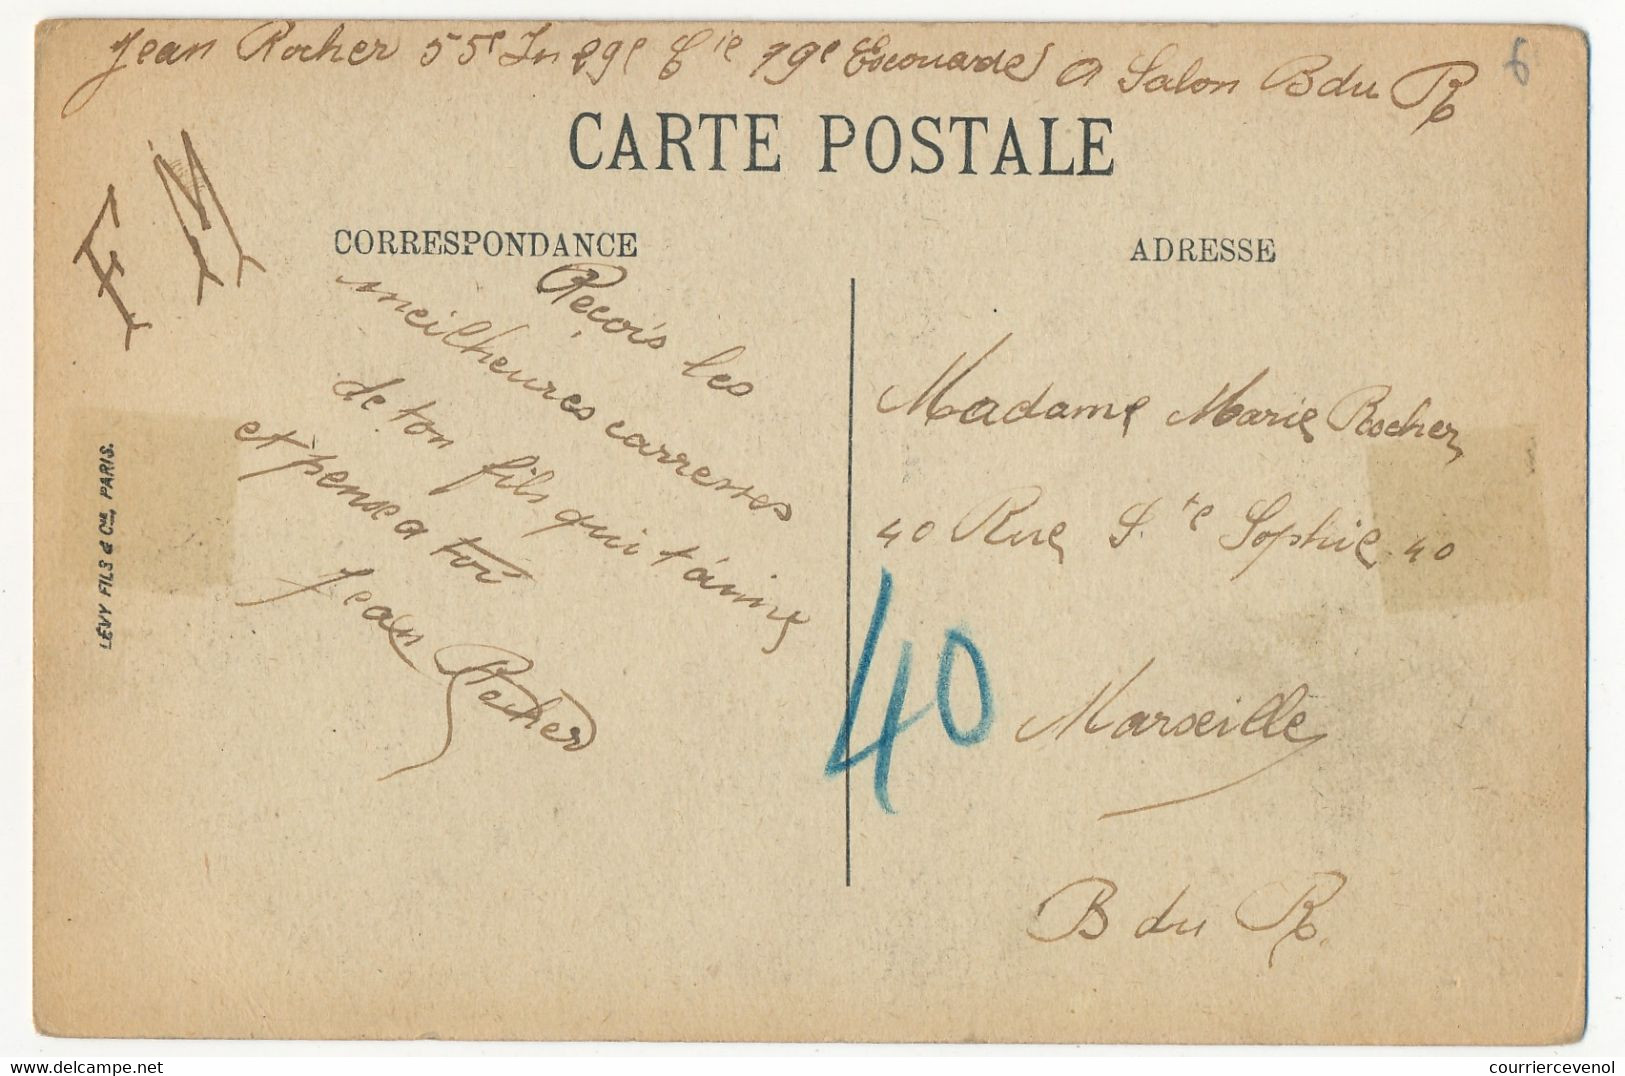 Jean Rocher 55e In 29e Cie 19e Escouade à Salon B du R
6
CARTE POSTALE
F M
CORRESPONDANCE
ADRESSE
Reçois les
meilheures carresses
de ton fils qui t'aime
et pense a toi
Jean Rocher
Madame Marie Rocher
40 Rue Ste Sophie 40
40
Marseille
B du R.
LÉVY FILS & Cie, PARIS.
courriercevenol
www.delcampe.net